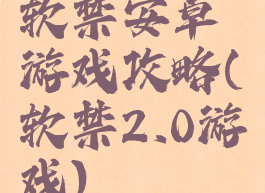 软禁安卓
游戏攻略(
软禁2.0游
戏)